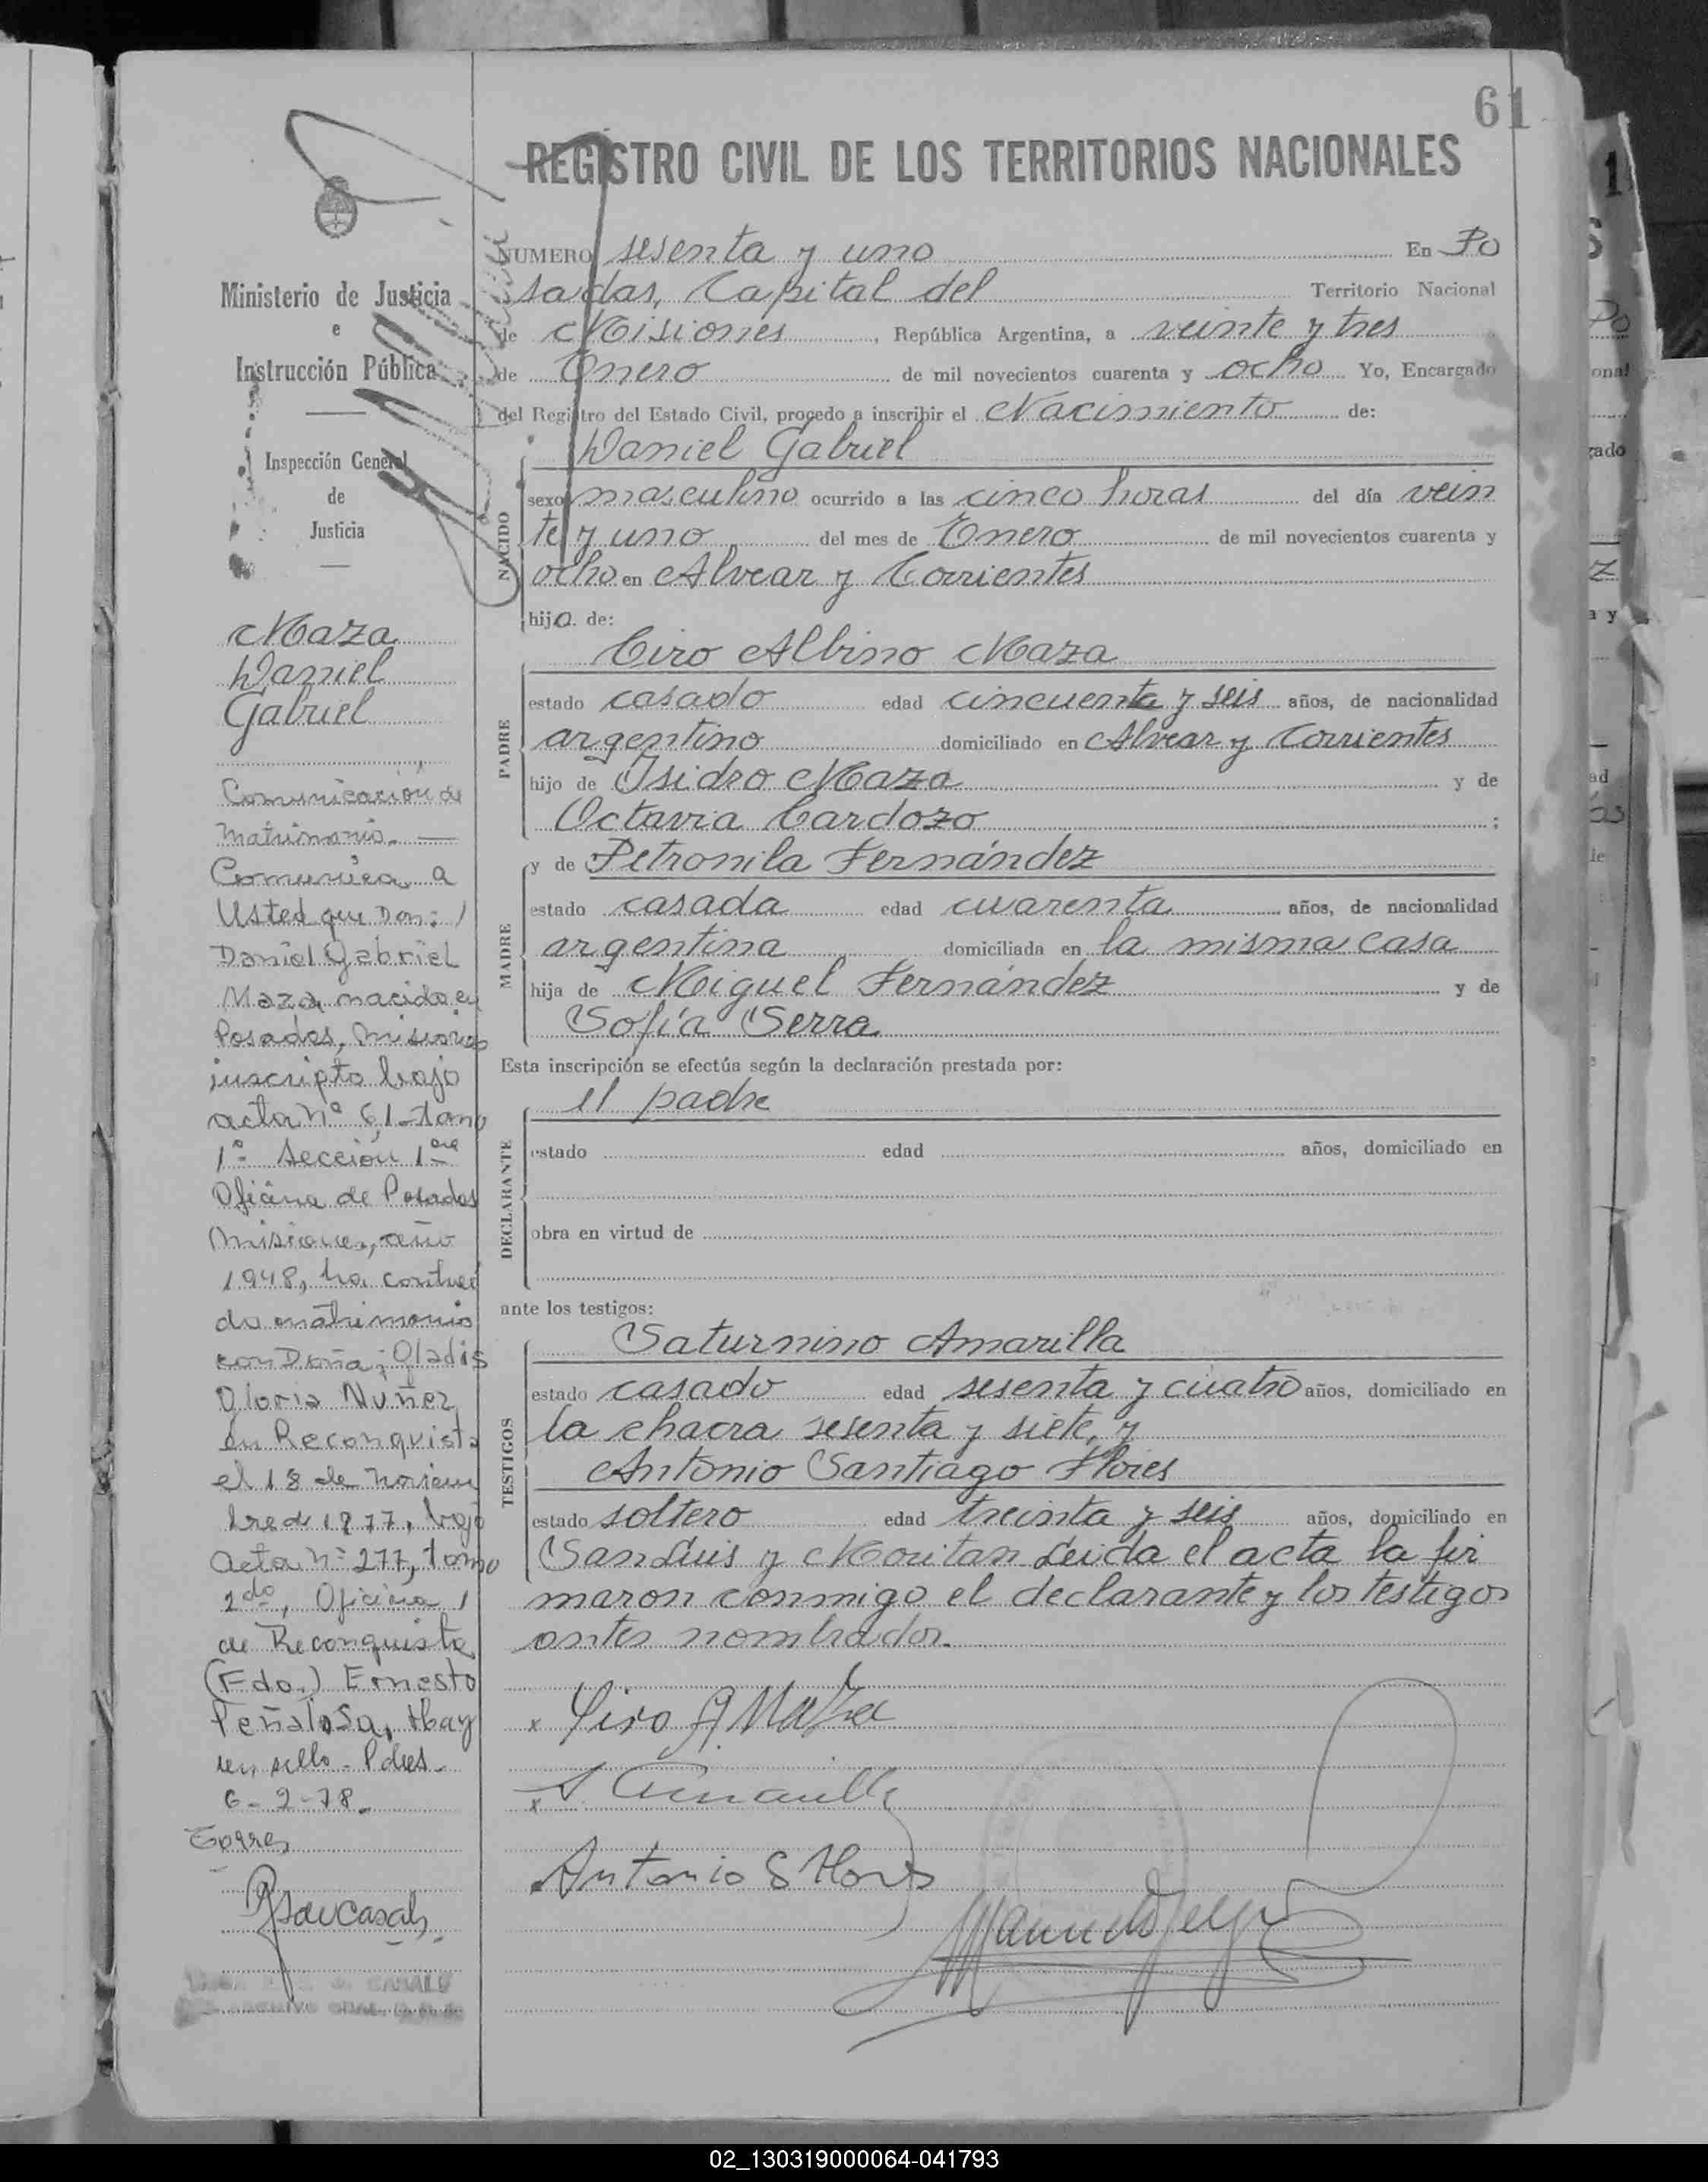 61
REGISTRO CIVIL DE LOS TERRITORIOS NACIONALES
Ministerio de Justicia
e
Instrucción Pública
Inspección General
de
Justicia
Maza
Daniel
Gabriel
Comunicación de
matrimonio.
Comunica a
Usted que Don:
Daniel Gabriel
Maza, nacido en
Posadas, Misiones
inscripto bajo
acta Nº 61 - tomo
1º Sección 1ra
Oficina de Posadas
Misiones, año
1948, ha contraí
do matrimonio
con Doña: Gladis
Gloria Nuñez
en Reconquista
el 18 de noviem
bre de 1977, bajo
Acta Nº 277, tomo
2do, Oficina
de Reconquista
(Fdo.) Ernesto
Peñalosa, Hay
un sello - Pdas.
6-2-78.
Torres
NUMERO sesenta y uno En Po
sadas, Capital del Territorio Nacional
de Misiones, República Argentina, a veinte y tres
de Enero de mil novecientos cuarenta y ocho Yo, Encargado
del Registro del Estado Civil, procedo a inscribir el Nacimiento de:
NACIDO
Daniel Gabriel
sexo masculino ocurrido a las cinco horas del día vein
te y uno del mes de Enero de mil novecientos cuarenta y
ocho en Alvear y Corrientes
hijo de:
PADRE
Ciro Albino Maza
estado casado edad cincuenta y seis años, de nacionalidad
argentino domiciliado en Alvear y Corrientes
hijo de Isidro Maza y de
Octavia Cardozo ;
MADRE
y de Petronila Fernández
estado casada edad cuarenta años, de nacionalidad
argentina domiciliada en la misma casa
hija de Miguel Fernández y de
Sofía Serra
Esta inscripción se efectúa según la declaración prestada por:
DECLARANTE
el padre
estado edad años, domiciliado en
obra en virtud de
ante los testigos:
TESTIGOS
Saturnino Amarilla
estado casado edad sesenta y cuatro años, domiciliado en
la chacra sesenta y siete, y
Antonio Santiago Flores
estado soltero edad treinta y seis años, domiciliado en
San Luis y Moritan Leida el acta la fir
maron conmigo el declarante y los testigos
antes nombrados.
x Siro A. Maza
x S. Amarilla
Antonio S Flores
02_130319000064-041793